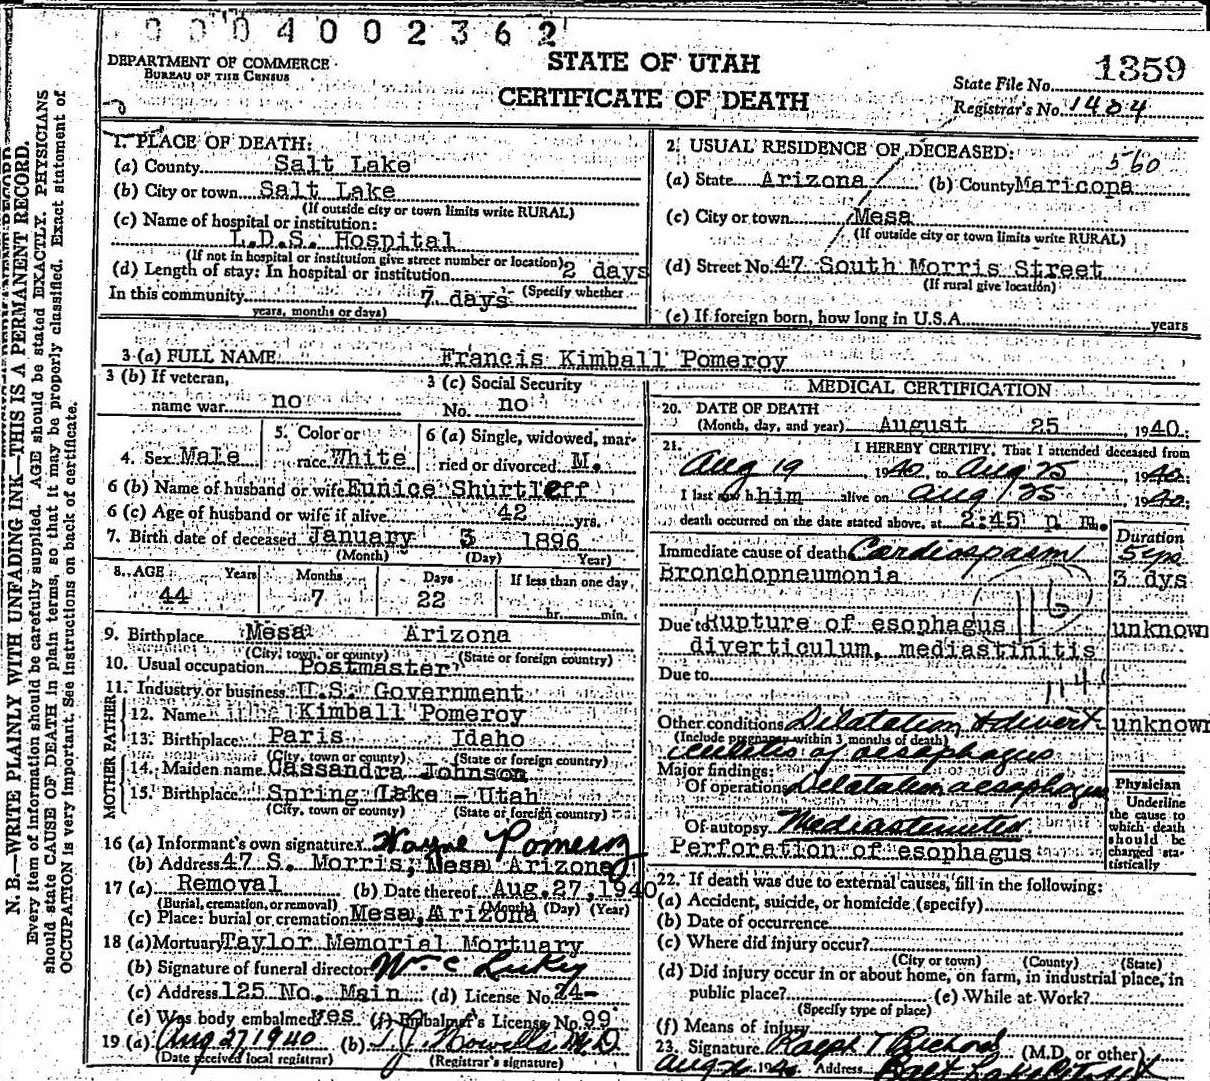 0004002362
DEPARTMENT OF COMMERCE
BUREAU OF THE CENSUS
STATE OF UTAH
CERTIFICATE OF DEATH
State File No. 1359
Registrar's No. 1404
N. B.—WRITE PLAINLY WITH UNFADING INK—THIS IS A PERMANENT RECORD.
Every item of information should be carefully supplied. AGE should be stated EXACTLY. PHYSICIANS
should state CAUSE OF DEATH in plain terms, so that it may be properly classified. Exact statement of
OCCUPATION is very important. See instructions on back of certificate.
1. PLACE OF DEATH:
(a) County Salt Lake
(b) City or town Salt Lake
(If outside city or town limits write RURAL)
(c) Name of hospital or institution:
L.D.S. Hospital
(If not in hospital or institution give street number or location)
(d) Length of stay: In hospital or institution 2 days
(Specify whether
In this community 7 days
years, months or days)
2. USUAL RESIDENCE OF DECEASED:
560
(a) State Arizona (b) County Maricopa
(c) City or town Mesa
(If outside city or town limits write RURAL)
(d) Street No. 47 South Morris Street
(If rural give location)
(e) If foreign born, how long in U.S.A. years
3 (a) FULL NAME Francis Kimball Pomeroy
3 (b) If veteran,
name war no
3 (c) Social Security
No. no
4. Sex Male
5. Color or
race White
6 (a) Single, widowed, mar-
ried or divorced M.
6 (b) Name of husband or wife Eunice Shurtleff
6 (c) Age of husband or wife if alive 42 yrs.
7. Birth date of deceased January 3 1896
(Month) (Day) Year)
8. AGE Years Months Days If less than one day
44 7 22 hr. min.
9. Birthplace Mesa Arizona
(City, town, or county) (State or foreign country)
10. Usual occupation Postmaster
11. Industry or business U.S. Government
FATHER
12. Name Kimball Pomeroy
13. Birthplace Paris Idaho
(City, town or county) (State or foreign country)
MOTHER
14. Maiden name Cassandra Johnson
15. Birthplace Spring Lake - Utah
(City, town or county) (State or foreign country)
16 (a) Informant's own signature Wayne Pomeroy
(b) Address 47 S. Morris, Mesa Arizona
17 (a) Removal (b) Date thereof Aug. 27, 1940
(Burial, cremation, or removal) (Month) (Day) (Year)
(c) Place: burial or cremation Mesa, Arizona
18 (a) Mortuary Taylor Memorial Mortuary
(b) Signature of funeral director Wm. C. Lukey
(c) Address 125 No. Main (d) License No. 74-
(e) Was body embalmed? yes (f) Embalmer's License No. 99
19 (a) Aug 27 1940 (b) M.D.
(Date received local registrar) (Registrar's signature)
MEDICAL CERTIFICATION
20. DATE OF DEATH
(Month, day, and year) August 25, 1940.
21. I HEREBY CERTIFY, That I attended deceased from
Aug 19, 1940 to Aug 25, 1940
I last saw h him alive on Aug 25, 1940
death occurred on the date stated above, at 2:45 p m.
Duration
Immediate cause of death Cardiospasm 5 yrs
Bronchopneumonia 3 dys
116
Due to Rupture of esophagus unknown
diverticulum, mediastinitis
Due to
114
Other conditions Dilatation & divert unknown
(Include pregnancy within 3 months of death)
iculitis of aesophagus
Major findings:
Of operations Dilatation aesophagus
Of autopsy Mediastinitis
Perforation of esophagus
Physician
Underline
the cause to
which death
should be
charged sta-
tistically
22. If death was due to external causes, fill in the following:
(a) Accident, suicide, or homicide (specify)
(b) Date of occurrence
(c) Where did injury occur?
(City or town) (County) (State)
(d) Did injury occur in or about home, on farm, in industrial place, in
public place? (e) While at Work?
(Specify type of place)
(f) Means of injury
23. Signature Ralph T Richards (M.D. or other)
Aug 1940 Address Salt Lake City